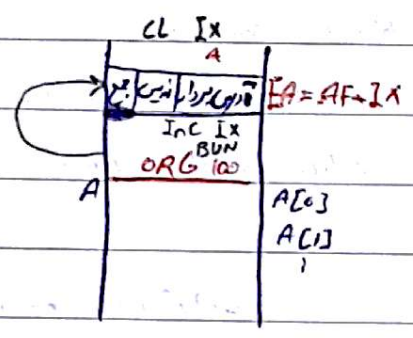 CL IX
A
جمع اندیس آدرس بردار EA = AF + IX
Inc IX
BUN
ORG 100
A A[0]
A[1]